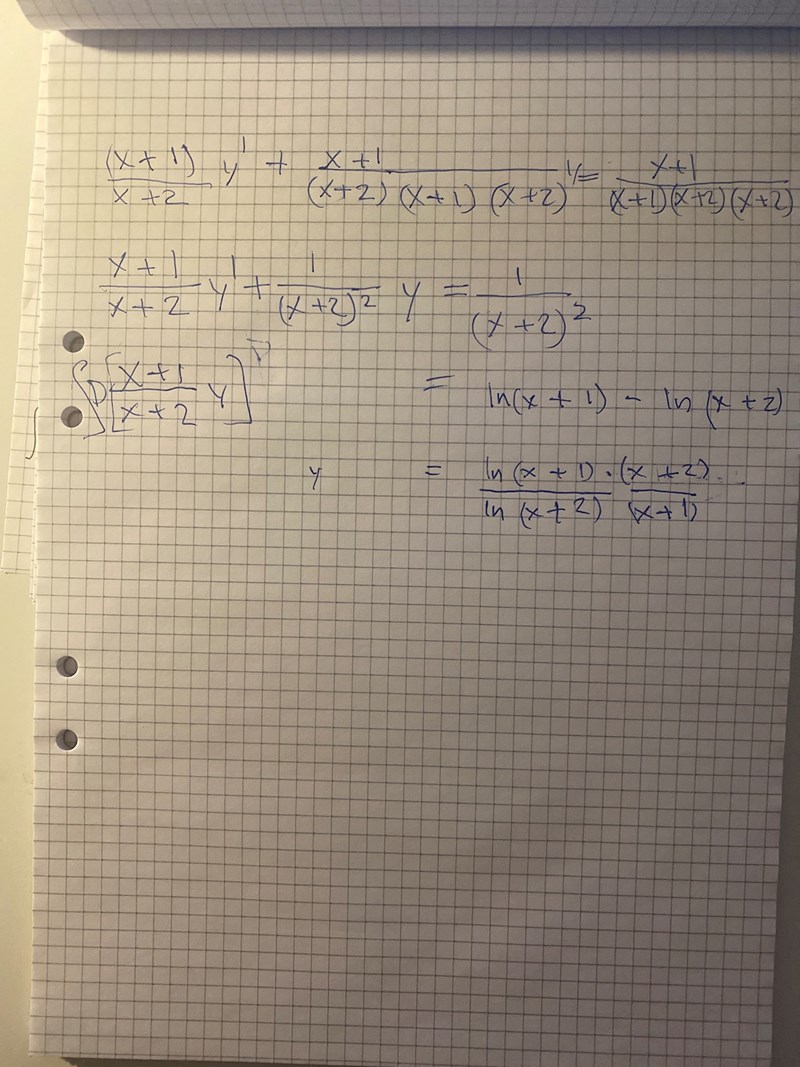 (x+1)/(x+2) y' + (x+1)/((x+2)(x+1)(x+2)) y = (x+1)/((x+1)(x+2)(x+2))
(x+1)/(x+2) y' + 1/(x+2)² y = 1/(x+2)²
∫D[(x+1)/(x+2) y] = ln(x+1) - ln(x+2)
y = ln(x+1)/ln(x+2) · (x+2)/(x+1) ..